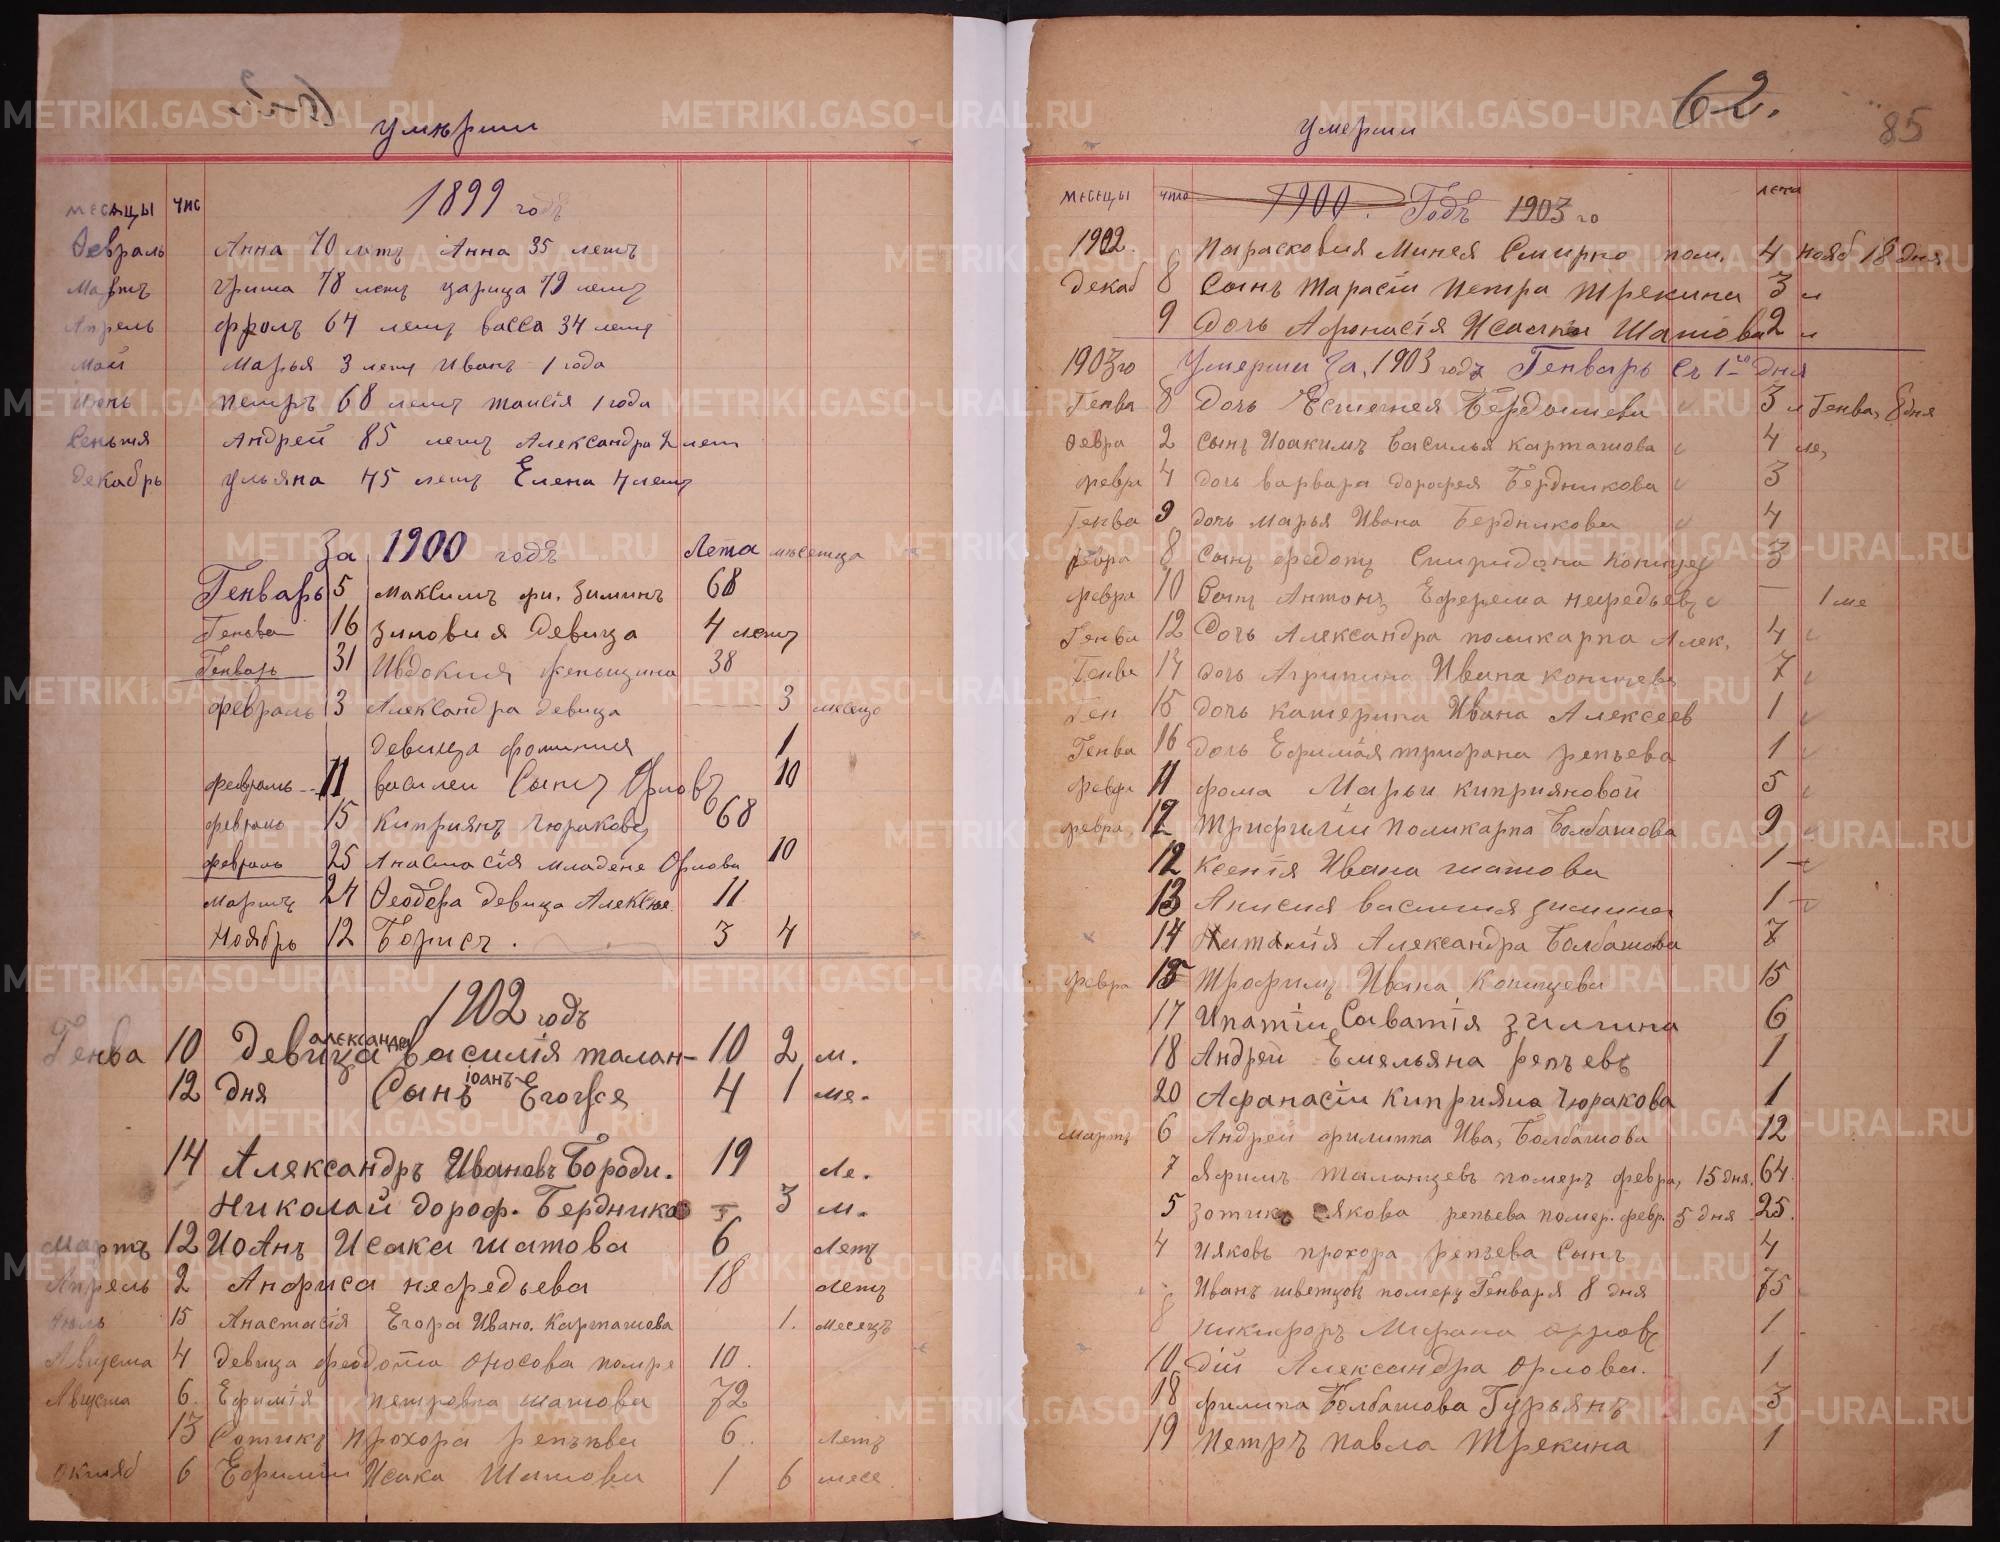 умѣрши
месяцы чис 1899 годъ
Февраль Анна 70 летъ Анна 35 летъ
Мартъ Гриша 78 летъ царица 79 летъ
Апрель фролъ 64 летъ васса 34 летъ
Май Марья 3 летъ Иванъ 1 года
Июнь петръ 68 летъ таисія 1 года
Сентя Андрей 85 летъ Александра 2 лет
Декабрь ульяна 75 летъ Елена 4 летъ
За 1900 годъ Лета мѣсеца
Генварь 5 Максимъ фи. Зиминъ 68
Генва 16 Зиновия девица 4 летъ
Генварь 31 Ивдокия женьщина 38
февраль 3 Александра девица 3 месецо
девица фотиния 1
февраль 11 василеи Сынъ Орловъ 10
февраль 15 Киприянъ Чюраковъ 68
февраль 25 Анастасія младене Орлова 10
мартъ 24 Феодора девица Алексее 11
Ноябрь 12 Борисъ. 3 4
1902 годъ
александра
Генва 10 девица василія талан- 10 2 м.
іоанъ
12 дня Сынъ Егорея 4 1 ме.
14 Александръ Ивановъ Бороди. 19 Ле.
Николай дороф. Бердников 3 м.
Мартъ 12 Иоанъ Исака шатова 6 Летъ
Апрель 2 Анфиса нефедьева 18 Летъ
Июль 15 Анастасія Егора Ивано. Карташева 1. месецъ
Августа 4 девица феодота Оносова помре 10.
Августа 6. Ефимія петровна шатова 72
13 Сотикъ Прохора репѣева 6. летъ
октяб 6 Ефимии Исака Шатова 1 6 месе
62.
85
умерши
месецы число 1900. Годъ 1903 го лета
1902. 6 Парасковия Минея Смирно пом. 4 нояб 18 дня
декаб 8 Сынъ Тарасій Петра Трекина 3 л
9 Дочь Афонасія Исаака Шатова 2 л
1903го Умерши За, 1903 годъ Генварь Съ 1го дня
Генва 8 Дочь Естегнея Бердышева 3 л Генва, 8 дня
Февра 2 Сынъ Иоакимъ Василья карташова 4 ле,
февра 4 дочь варвара дорофея Бердникова 3
Генва 9 дочь Марья Ивана Бердникова 4
февра 8 Сынъ федотъ Спиридона Копицев 3
февра 10 Сынъ Антонъ Ефрема нефедьевъ — 1 ме
Генва 12 Дочь Александра поликарпа Алек, 4
Генва 14 дочь Агрипина Ивана копичева 7
Ген 15 дочь катерина Ивана Алексеев 1
Генва 16 дочь Ефимая трифана репьева 1
февра 11 фома Марьи киприяновой 5
февра, 12 Трифилій Поликарпа Болбашова 9
12 Ксенія Ивана шатова 1
13 Анисия василия зимина 1
14 Наталия Александра Болбашова 7
февра 15 Трофимъ Ивана Копицева 15
17 Ипатіи Саватія зимина 6
18 Андрей Емельяна репъевъ 1
20 Афанасіи Киприяна Чюракова 1
Мартъ 6 Андрей филиппа Ива, Болбашова 12
7 Яфимъ Таланцевъ померъ февра, 15 дня. 64.
5 зотикъ Якова репьева помер. февр. 5 дня 25.
4 Ияковъ прохора репѣева Сынъ 4
Иванъ шветцовъ померъ Генваря 8 дня 75
8 никифоръ Мефана орловъ 1
10 дій Александра орлова. 1
18 филипа Болбашова Гурьянъ 3
19 Петръ павла Трекина 1
METRIKI.GASO-URAL.RU